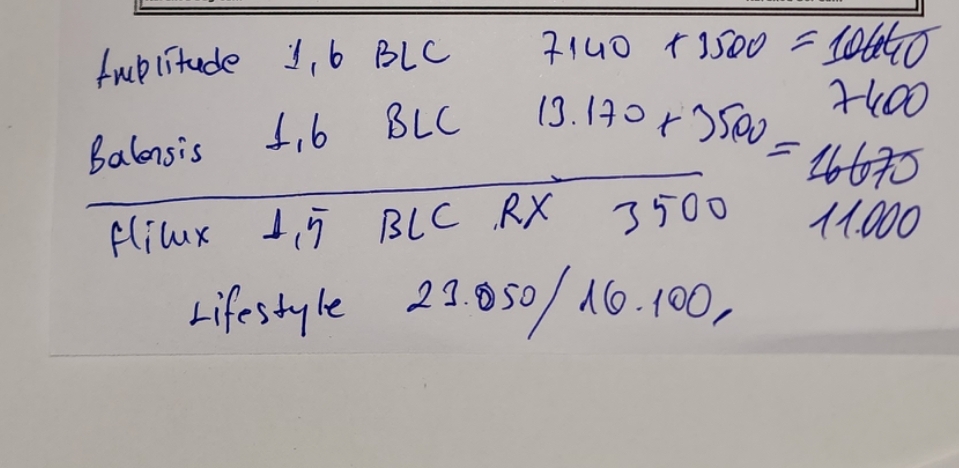 Amplitude 1,6 BLC 7140 + 3500 = 10640
7400
Balansis 1,6 BLC 13.170 + 3500 = 16670
11.000
Hilux 1,5 BLC RX 3500
Lifestyle 23.050/16.100,